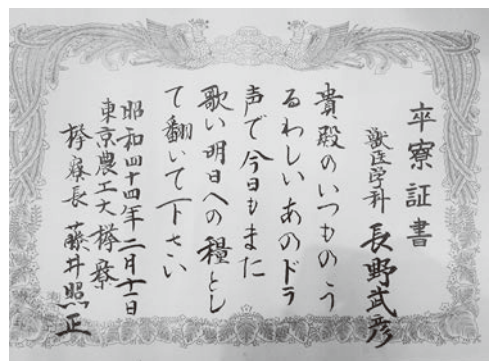 卒寮証書
獣医学科 長野武彦
貴殿のいつものう
るわしいあのドラ
声で今日もまた
歌い明日への糧とし
て翻いて下さい
昭和四十四年二月十一日
東京農工大欅寮
欅寮長 藤井照正